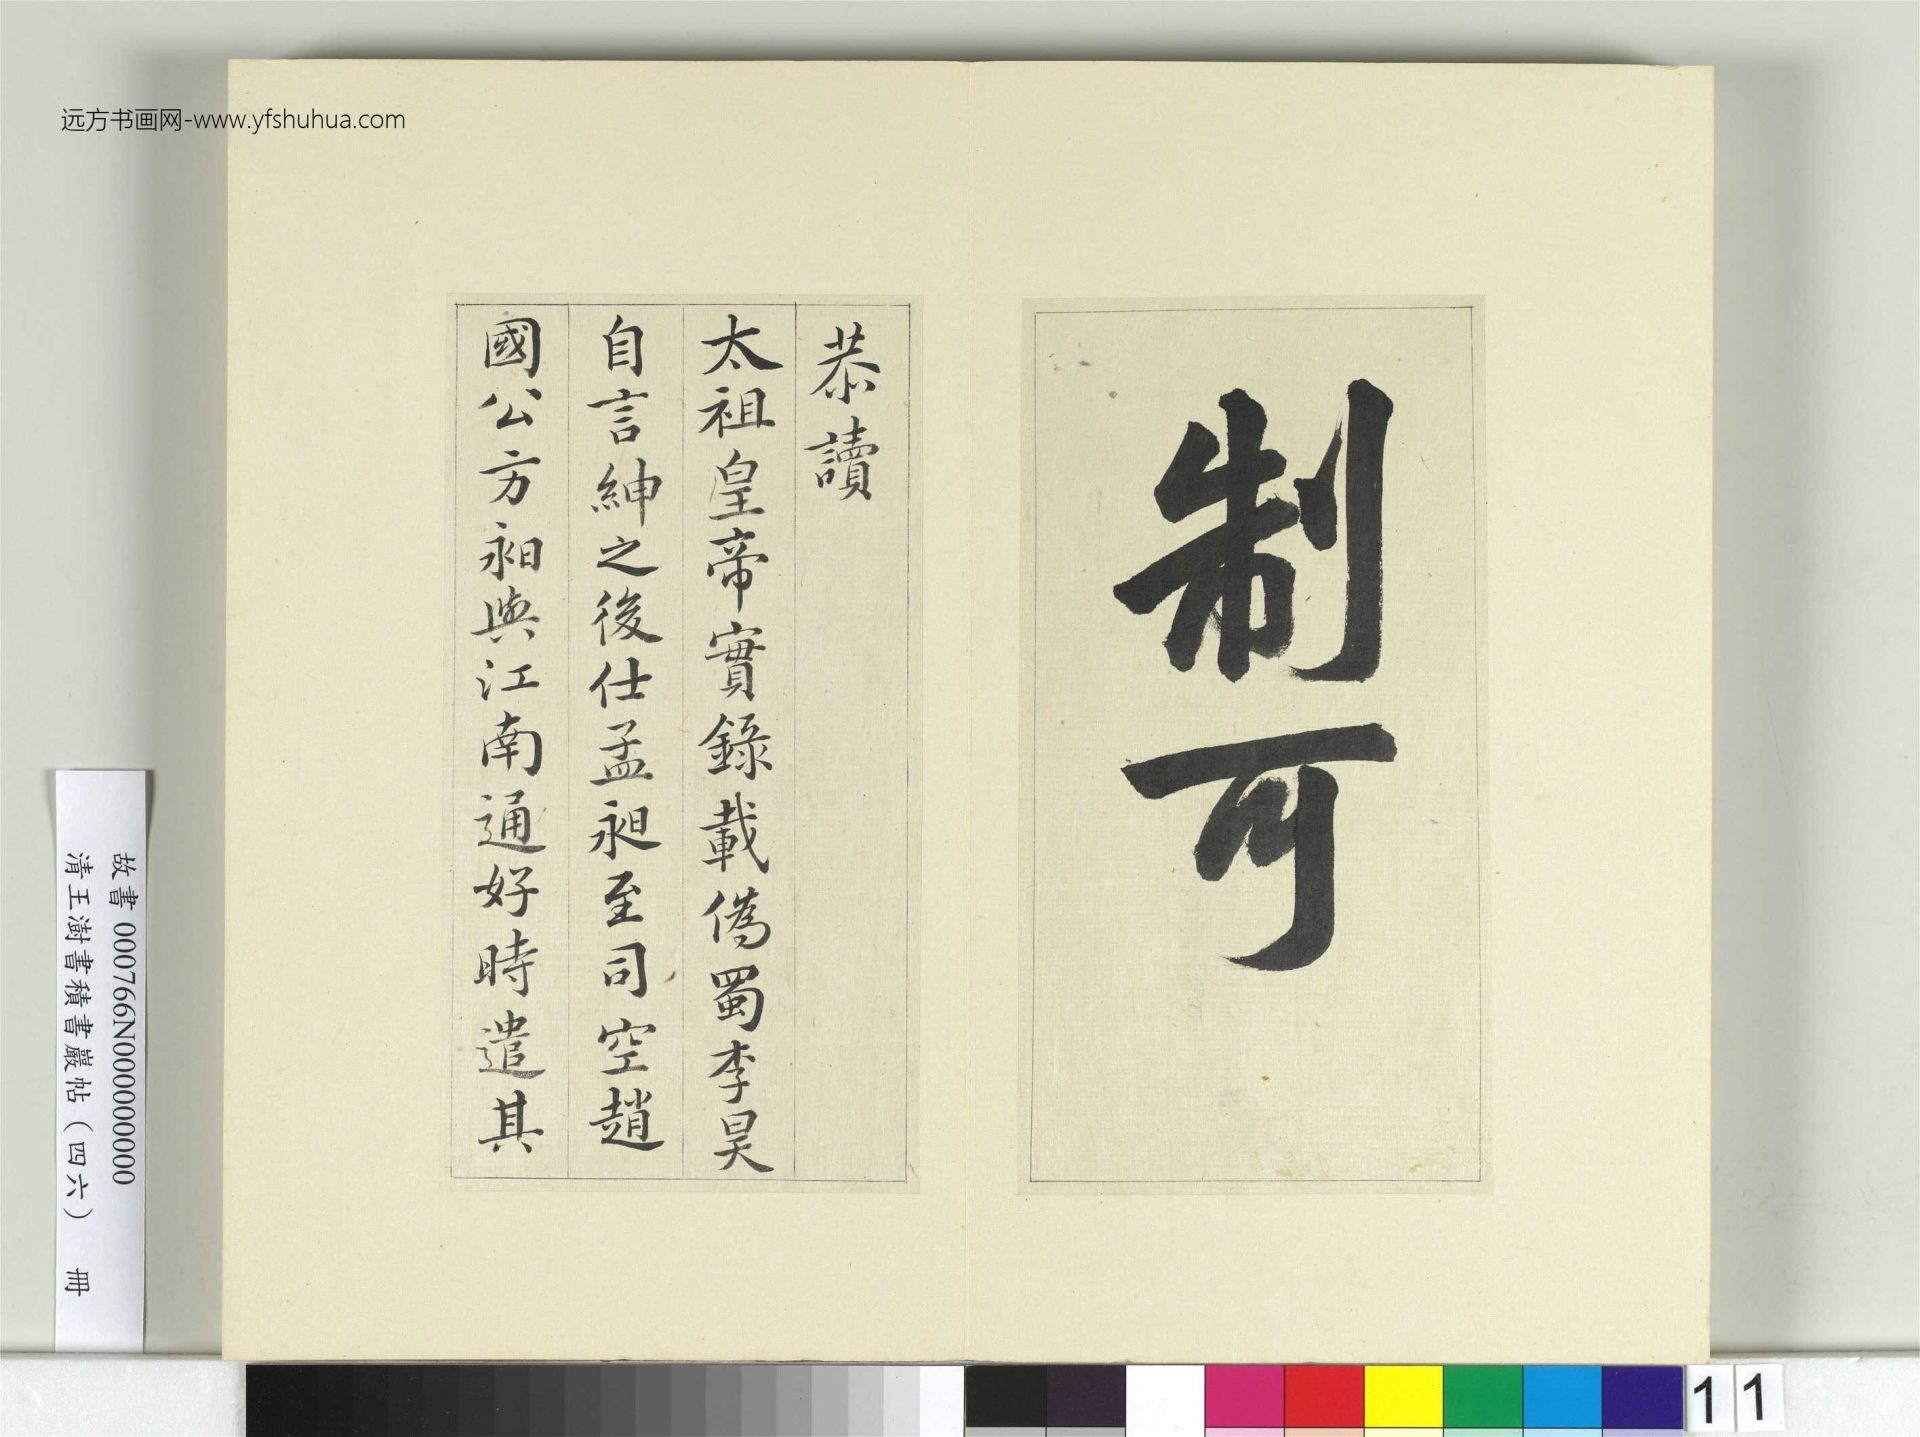 远方书画网-www.yfshuhua.com
制可
恭讀
太祖皇帝實錄載僞蜀李昊
自言紳之後仕孟昶至司空趙
國公方昶與江南通好時遣其
故書 000766N000000000
清王澍書積書巖帖（四六） 冊
11